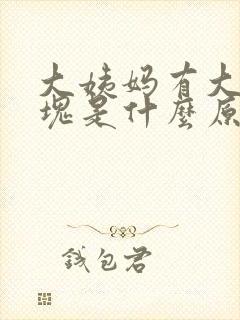 大姨妈有大
塊是什麼原
錢包君